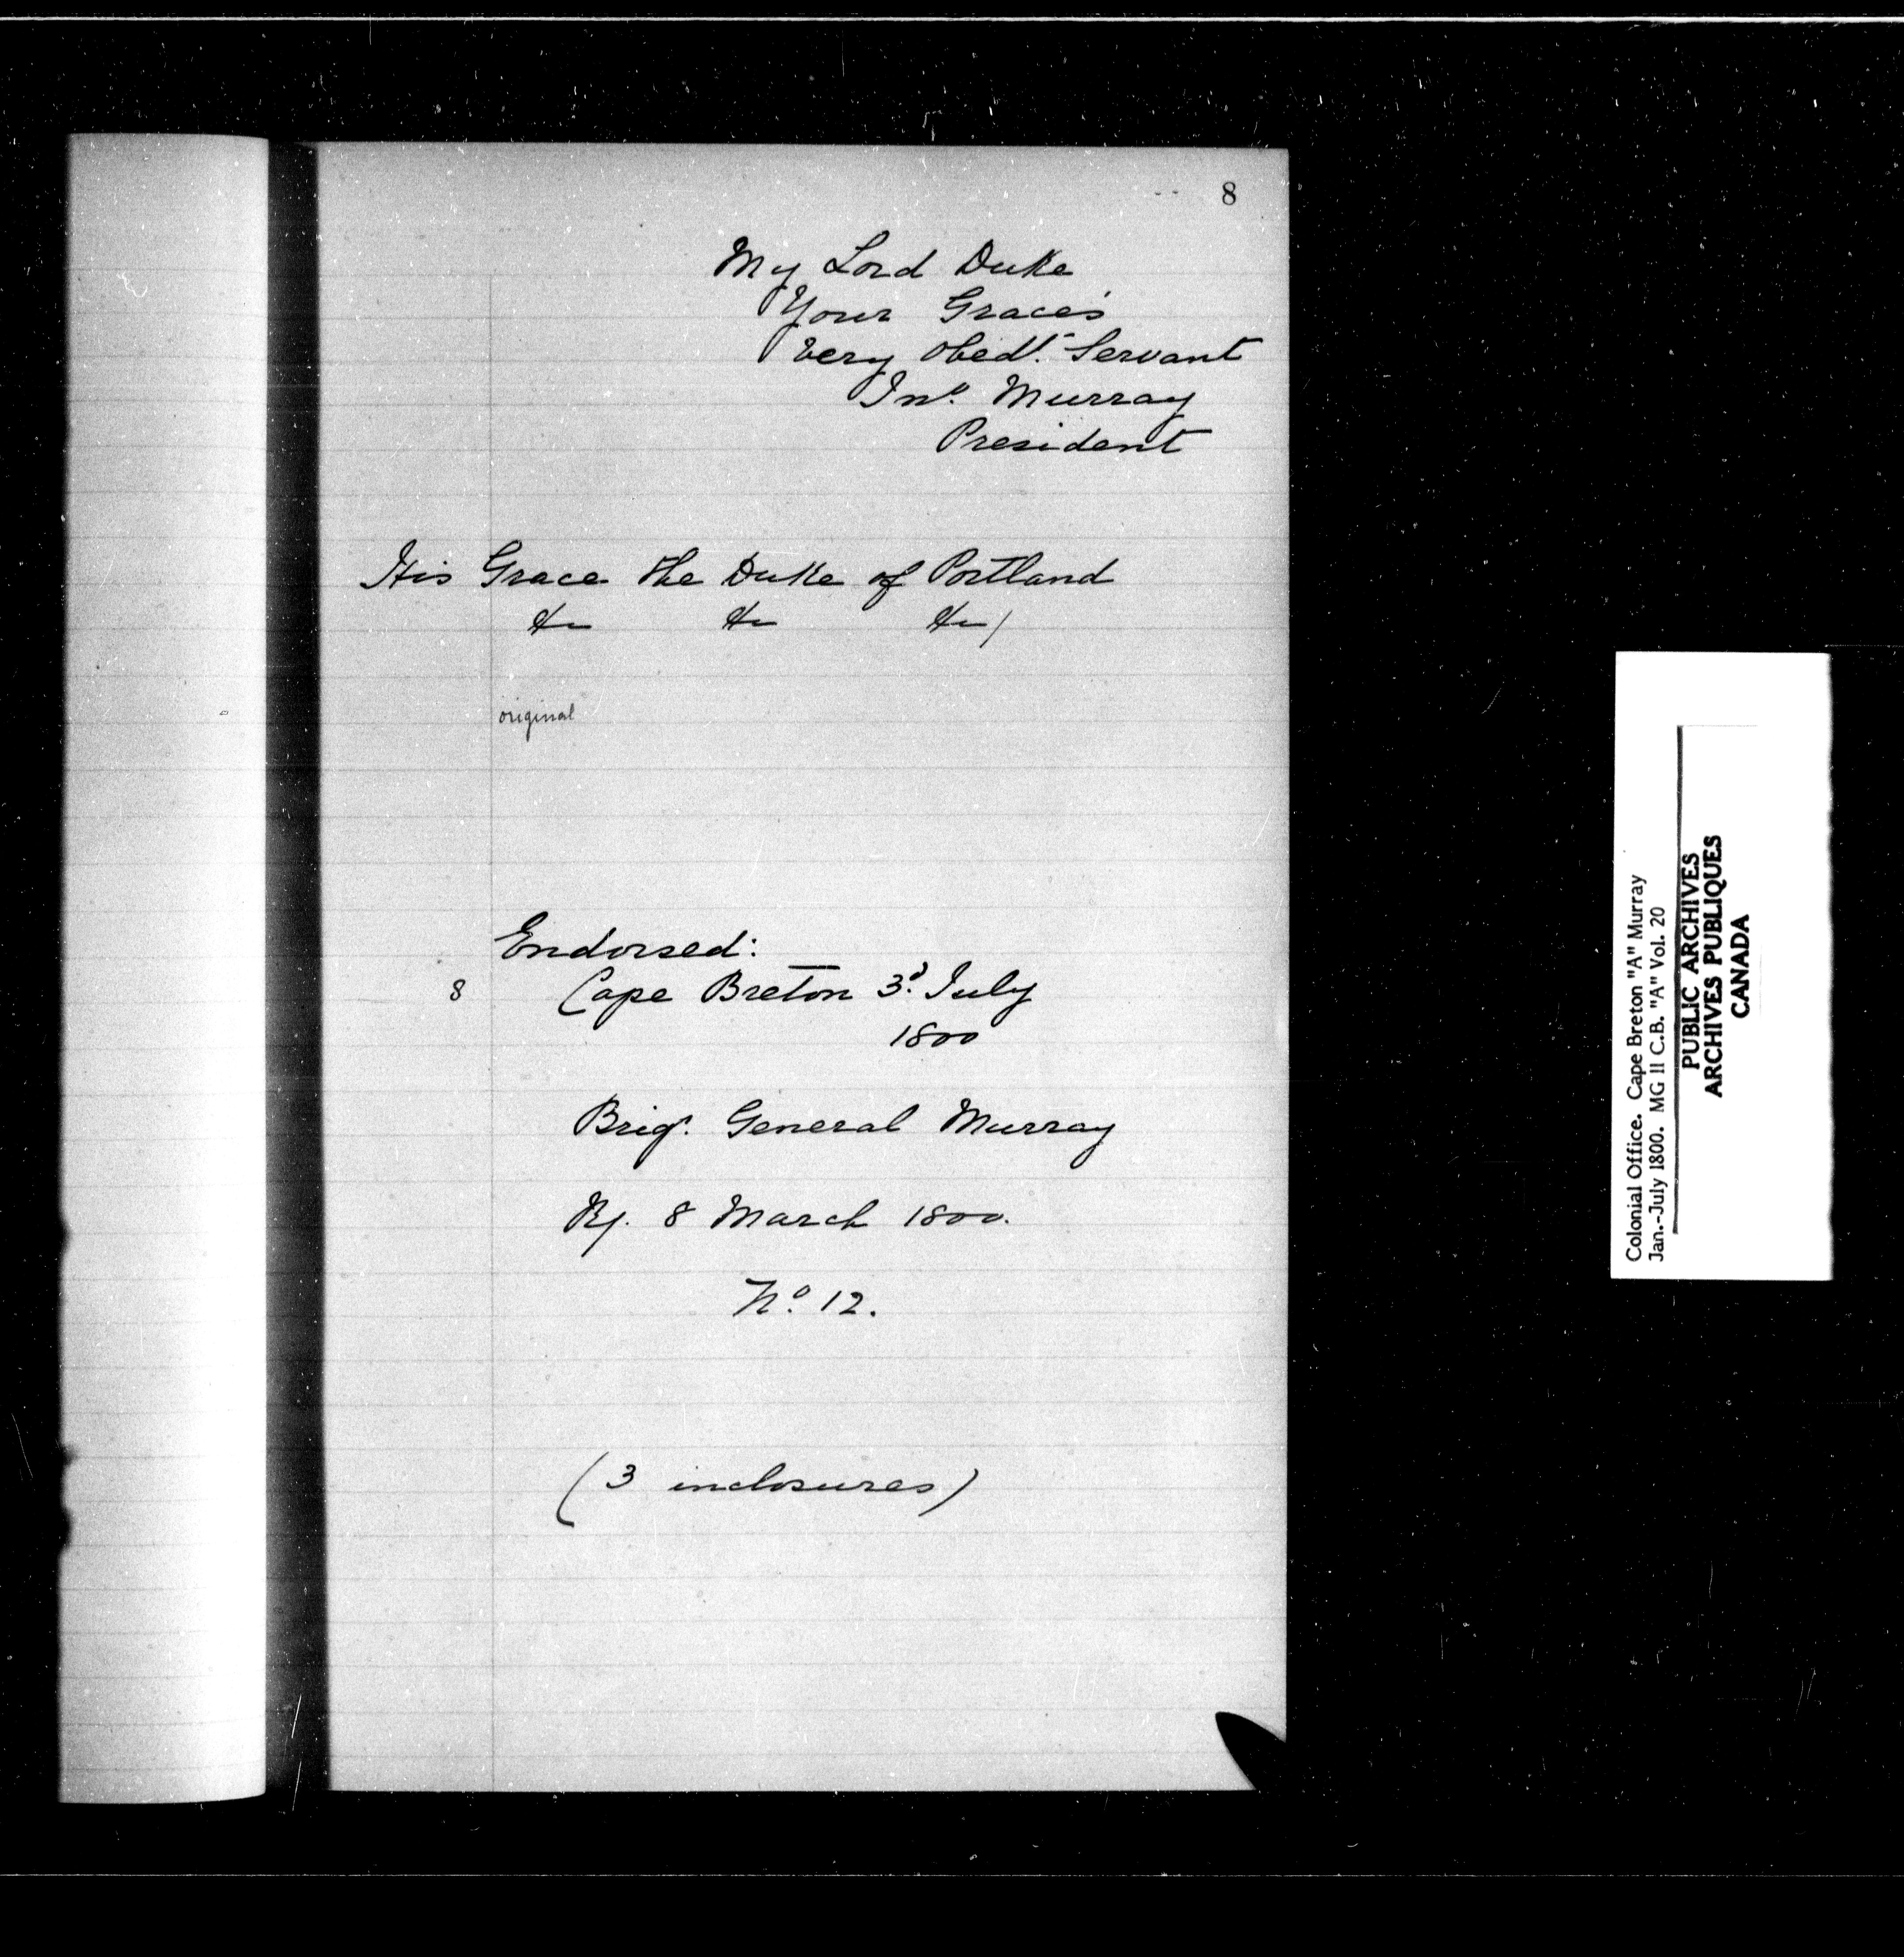 8
My Lord Duke
Your Grace's
Very obedt. Servant
Jno. Murray
President
His Grace the Duke of Portland
&c &c &c/
original
Endorsed:
8 Cape Breton 3d. July
1800
Brigr. General Murray
Ry. 8 March 1800.
No. 12.
(3 inclosures)
Colonial Office. Cape Breton "A" Murray
Jan.-July 1800. MG 11 C.B. "A" Vol. 20
PUBLIC ARCHIVES
ARCHIVES PUBLIQUES
CANADA